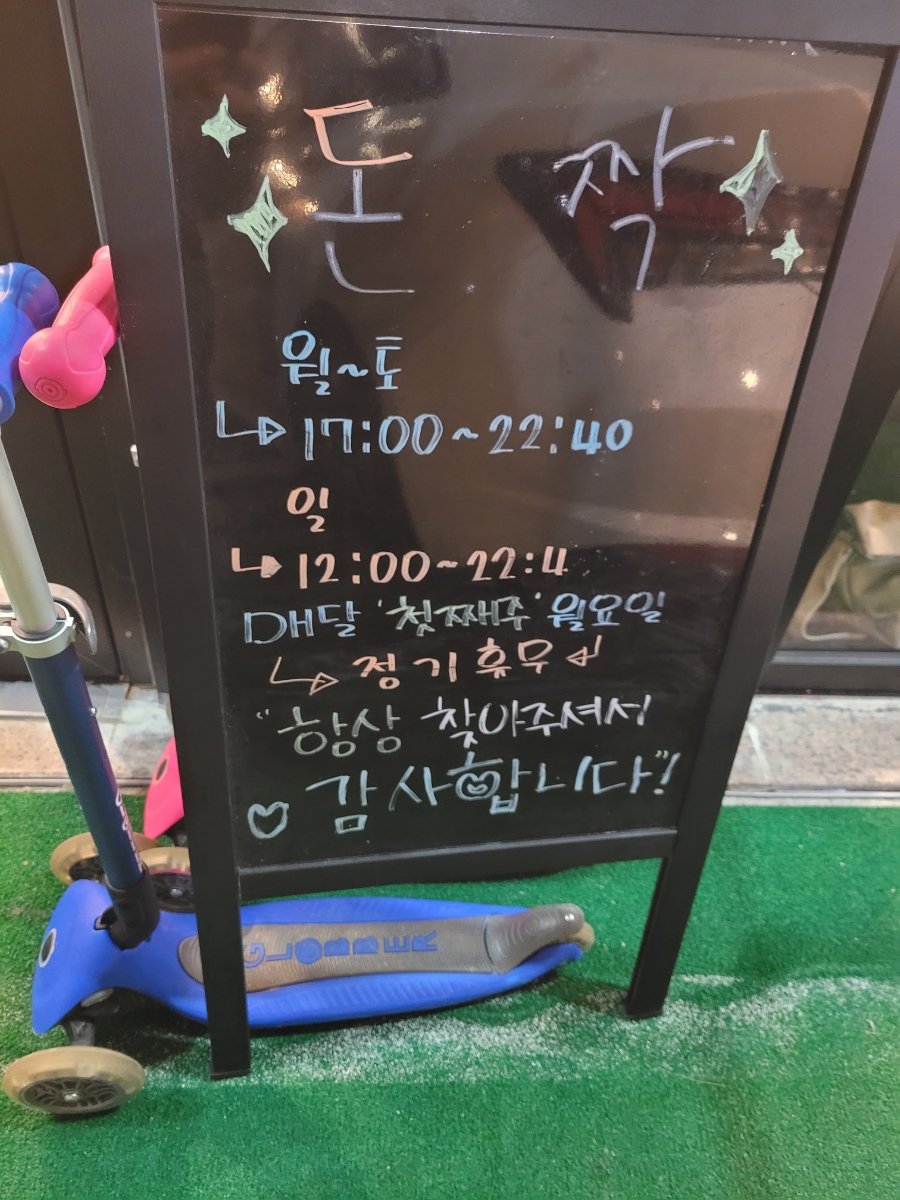 돈 짝
월~토
17:00~22:40
일
12:00~22:4
매달 '첫째주' 월요일
정기휴무
"항상 찾아주셔서
감사합니다"!
GLOBBER